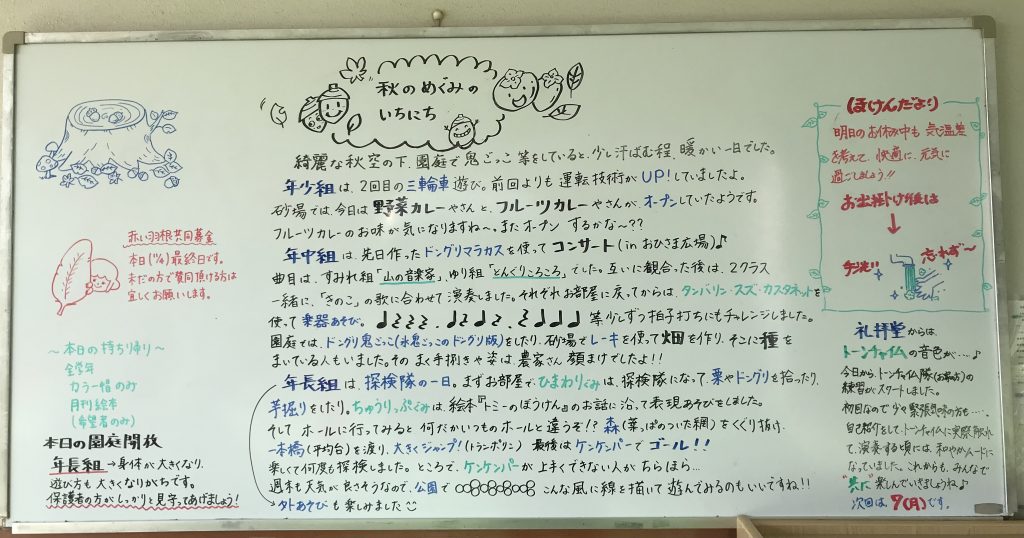 秋のめぐみの
いちにち
綺麗な秋空の下、園庭で鬼ごっこ等をしていると、少し汗ばむ程、暖かい一日でした。
年少組は、2回目の三輪車遊び。前回よりも運転技術がUP!していましたよ。
砂場では、今日は野菜カレーやさんと、フルーツカレーやさんが、オープンしていたようです。
フルーツカレーのお味が気になりますね〜。またオープンするかな〜??
年中組は、先日作ったドングリマラカスを使ってコンサート(inおひさま広場)♪
曲目は、すみれ組「山の音楽家」、ゆり組「どんぐりころころ」でした。互いに観合った後は、2クラス
一緒に、「きのこ」の歌に合わせて演奏しました。それぞれお部屋に戻ってからは、タンバリン・スズ・カスタネットを
使って楽器あそび。 等少しずつ拍子打ちにもチャレンジしました。
園庭では、ドングリ鬼ごっこ(氷鬼ごっこのドングリ版)をしたり、砂場でレーキを使って畑を作り、そこに種を
まいている人もいました。そのまく手捌きや姿は、農家さん顔まけでしたよ!!
年長組は、探検隊の一日。まずお部屋で、ひまわりぐみは、探検隊になって、栗やドングリを拾ったり、
芋掘りをしたり。ちゅうりっぷぐみは、絵本『トミーのぼうけん』のお話に沿って表現あそびをしました。
そして ホールに行ってみると 何だかいつものホールと違うぞ!? 森(葉っぱのついた網)をくぐり抜け、
一本橋(平均台)を渡り、大きくジャンプ!(トランポリン) 最後はケンケンパーでゴール!!
楽しくて何度も探検しました。ところで、ケンケンパーが上手くできない人がちらほら…
週末も天気が良さそうなので、公園で こんな風に線を描いて遊んでみるのもいいですね!!
→外あそびも楽しみました
赤い羽根共同募金
本日(11/4)最終日です。
まだの方で賛同頂ける方は
宜しくお願いします。
〜本日の持ち帰り〜
全学年
カラー帽のみ
月刊絵本
(希望者のみ)
本日の園庭開放
年長組→身体が大きくなり、
遊び方も大きくなりがちです。
保護者の方がしっかりと見守ってあげましょう!
ほけんだより
明日のお休み中も 気温差
を考えて、快適に、元気に
過ごしましょう!!
お出掛け後は
↓
手洗い
忘れず〜
礼拝堂からは、
トーンチャイムの音色が…♪
今日から、トーンチャイム隊の
練習がスタートしました。
初回なので少々緊張気味の方も…。
自己紹介をして、トーンチャイムに実際触れて
て、演奏する頃には、和やかムードに
なっていました。これからも、みんなで
共に楽しんでいきましょうね♪
次回は、7(月)です。